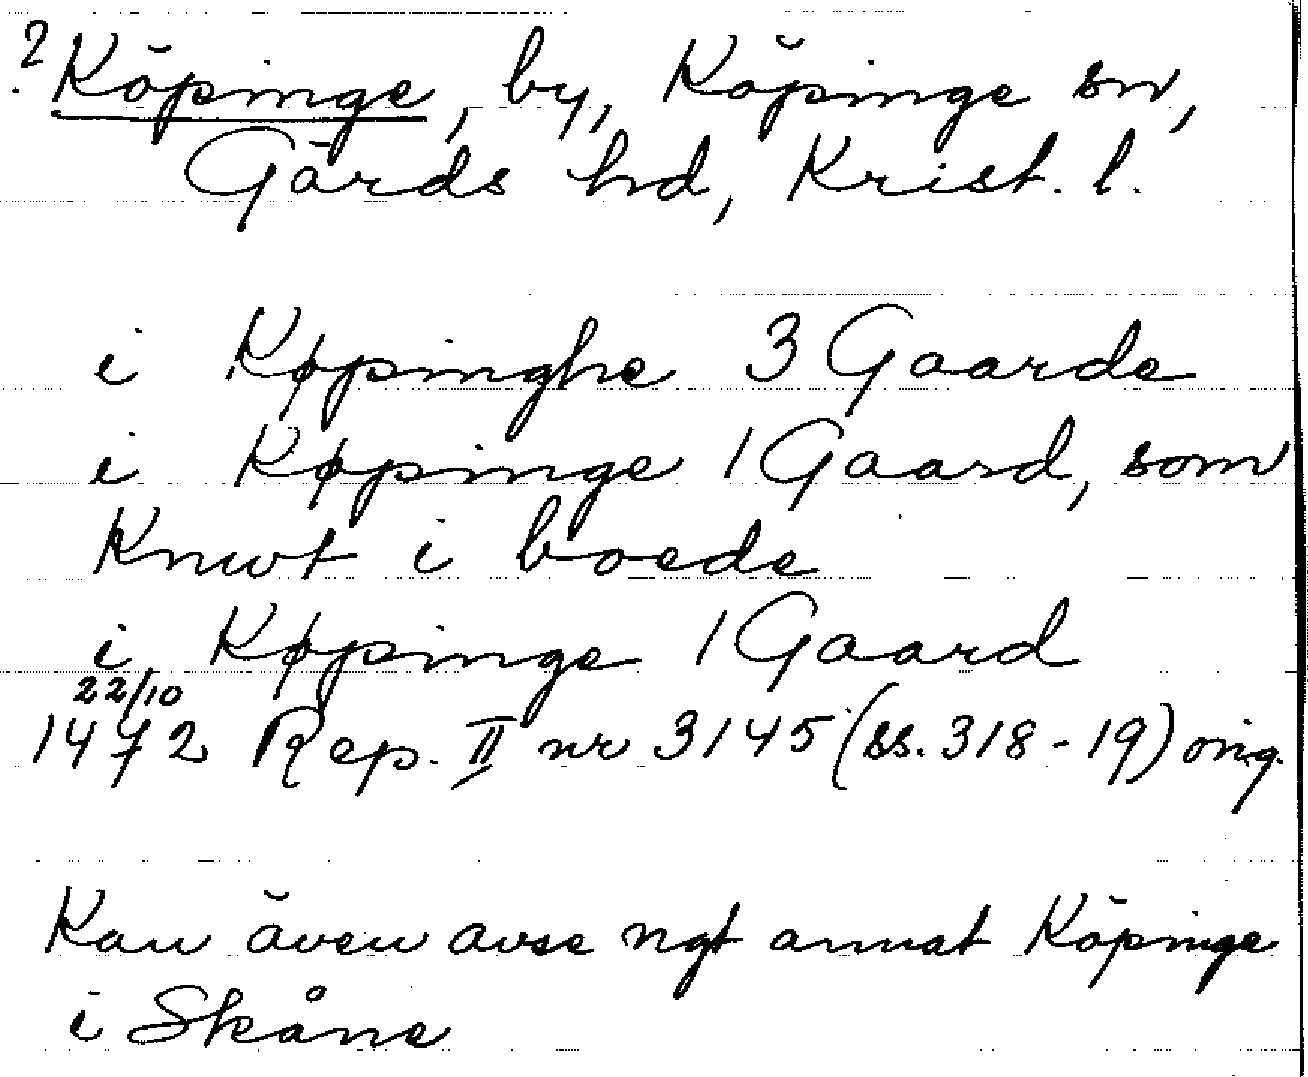 ? Köpinge, by, Köpinge sn,
Gärds hd, Krist. l.
i Køpinghe 3 Gaarde
i Køpinge 1 Gaard, som
Knwt i boede
i Køpinge 1 Gaard
22/10
1472 Rep. II nr 3145 (ss. 318-19) orig.
Kan även avse ngt annat Köpinge
i Skåne